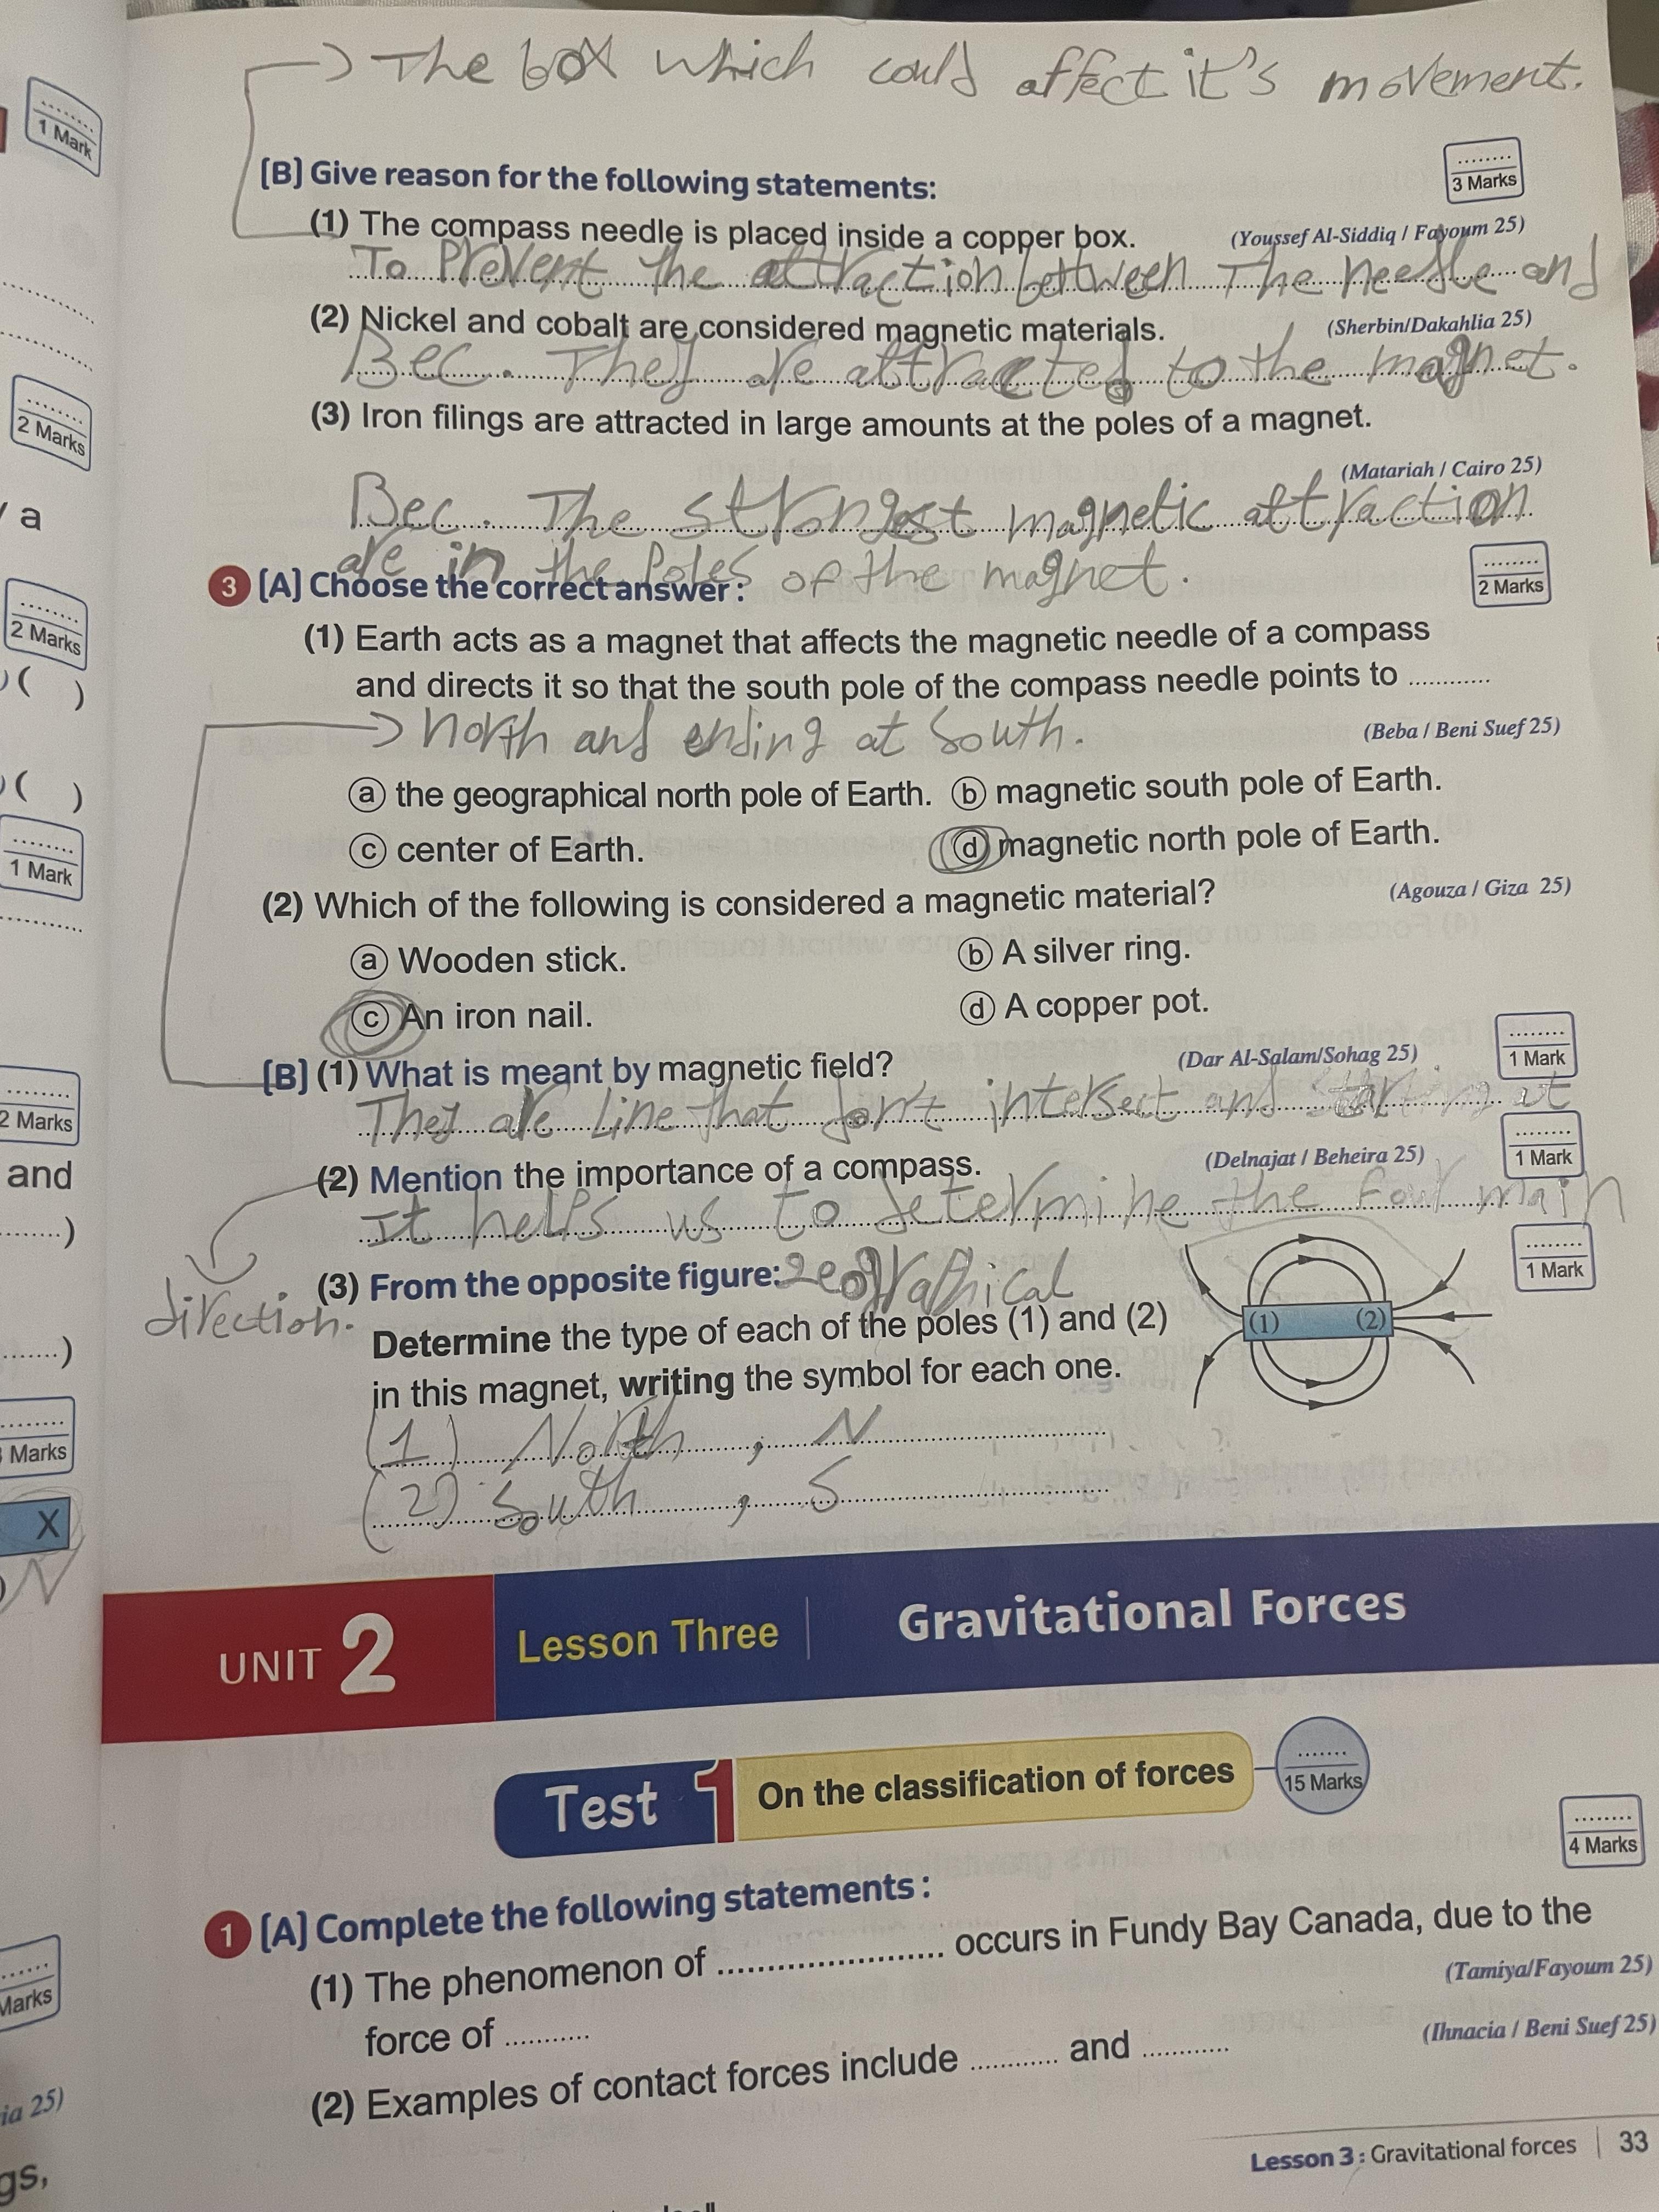 The box which could affect it's movement.
1 Mark
[B] Give reason for the following statements:
3 Marks
(1) The compass needle is placed inside a copper box.
(Youssef Al-Siddiq / Fayoum 25)
To Prevent the attraction between The needle and
(2) Nickel and cobalt are considered magnetic materials.
(Sherbin/Dakahlia 25)
Bec. They are attracted to the magnet.
2 Marks
(3) Iron filings are attracted in large amounts at the poles of a magnet.
(Matariah / Cairo 25)
a
Bec. The strongest magnetic attraction
are in the Poles of the magnet.
3 [A] Choose the correct answer:
2 Marks
2 Marks
( )
(1) Earth acts as a magnet that affects the magnetic needle of a compass
and directs it so that the south pole of the compass needle points to ............
north and ending at South.
(Beba / Beni Suef 25)
( )
ⓐ the geographical north pole of Earth. ⓑ magnetic south pole of Earth.
ⓒ center of Earth. ⓓ magnetic north pole of Earth.
1 Mark
(2) Which of the following is considered a magnetic material?
(Agouza / Giza 25)
ⓐ Wooden stick. ⓑ A silver ring.
ⓒ An iron nail. ⓓ A copper pot.
[B] (1) What is meant by magnetic field?
(Dar Al-Salam/Sohag 25)
1 Mark
2 Marks
They are line that don't intersect and starting at
and
(2) Mention the importance of a compass.
(Delnajat / Beheira 25)
1 Mark
.......)
It helps us to determine the four main
(3) From the opposite figure:
geographical
1 Mark
direction.
Determine the type of each of the poles (1) and (2)
in this magnet, writing the symbol for each one.
(1) (2)
.......)
Marks
(1) North , N
(2) South , S
X
N
UNIT 2 Lesson Three Gravitational Forces
Test 1 On the classification of forces
15 Marks
4 Marks
1 [A] Complete the following statements:
(1) The phenomenon of ...................... occurs in Fundy Bay Canada, due to the
force of ...........
(Tamiya/Fayoum 25)
Marks
(2) Examples of contact forces include ........... and ...........
(Ihnacia / Beni Suef 25)
ia 25)
gs,
Lesson 3 : Gravitational forces | 33